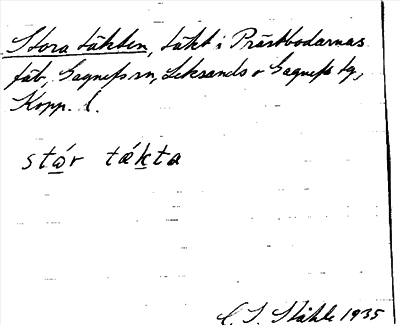 Stora täkten, täkt i Prästbodarnas
fäb, Gagnefs sn, Leksands o Gagnefs tg,
Kopp. l.
stώ̲r tǽk̲ta
C. I. Ståhle 1935